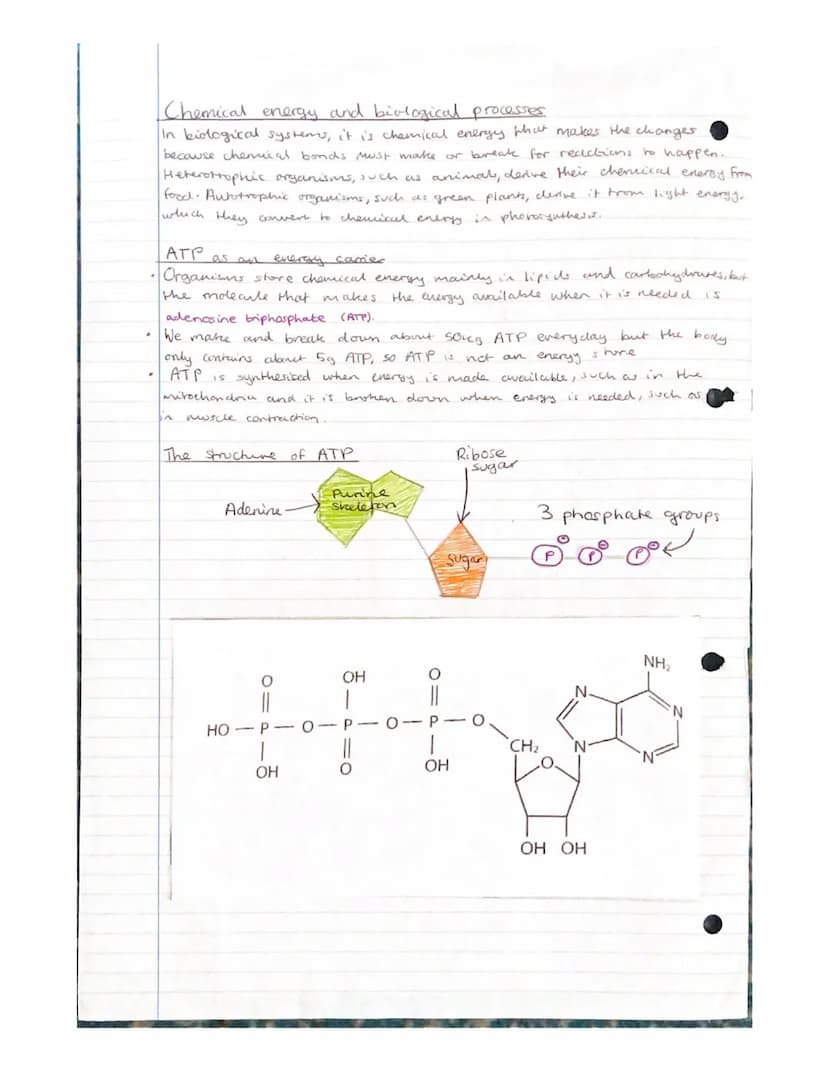 Chemical energy and biological processes
In biological systems, it is chemical energy that makes the changes
because chemical bonds must make or break for reactions to happen.
Heterotrophic organisms, such as animals, derive their chemical energy from
food. Autotrophic organisms, such as green plants, derive it from light energy,
which they convert to chemical energy in photosynthesis.
ATP as an energy carrier
• Organisms store chemical energy mainly in lipids and carbohydrates, but
the molecule that makes the energy available when it is needed is
adenosine triphosphate (ATP).
• We make and break down about 50kg ATP everyday but the body
only contains about 5g ATP, so ATP is not an energy store
• ATP is synthesised when energy is made available, such as in the
mitochondria and it is broken down when energy is needed, such as
in muscle contraction.
The structure of ATP
Ribose
sugar
Adenine
Purine
skeleton
3 phosphate groups
sugar
P P P
NH₂
O OH O
N N
HO — P — O — P — O — P — O
CH₂ N N
OH O OH
O
OH OH